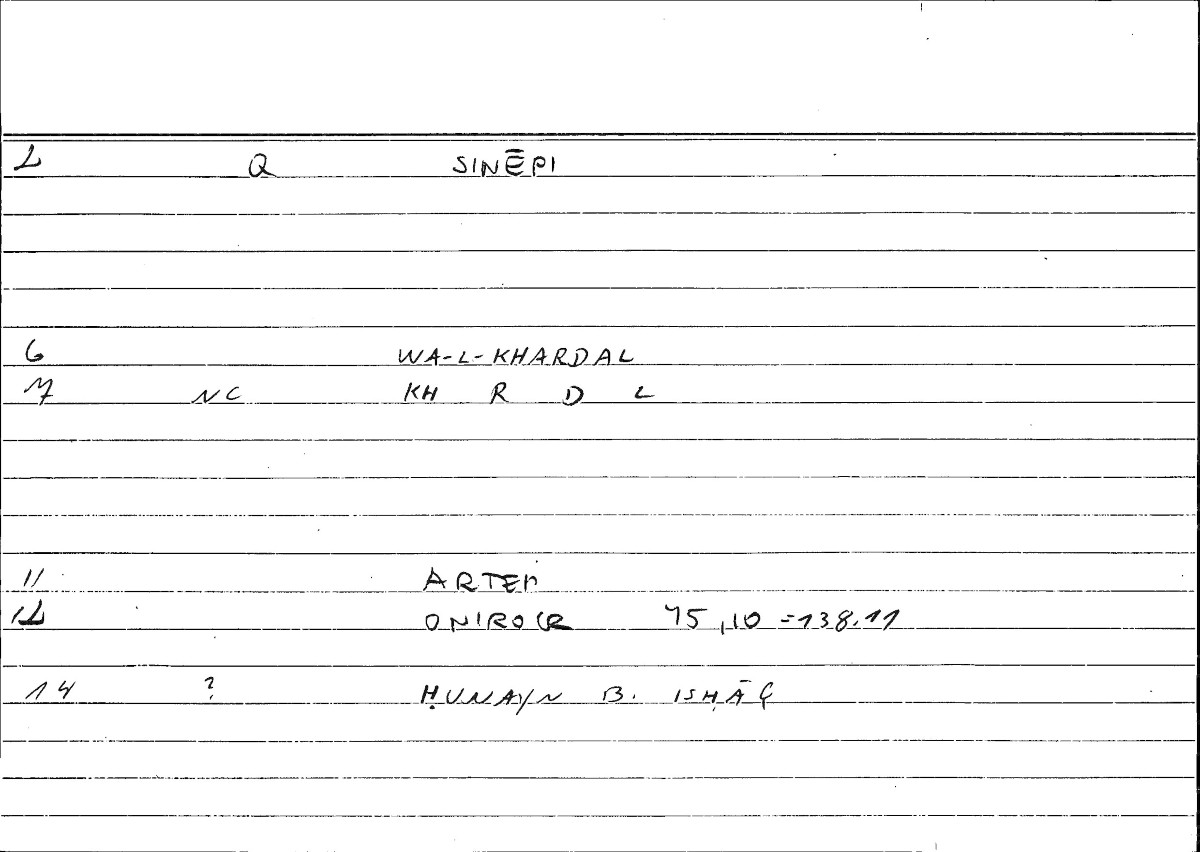 2 Q SINĒPI
6 WA-L-KHARDAL
7 NC KH R D L
11 ARTEM
12 ONIROCR 75,10 = 138.11
14 ? ḤUNAYN B. ISḤĀQ